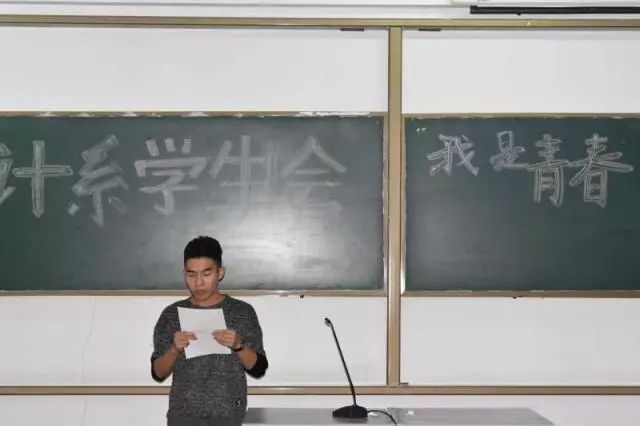 计系学生会
我是青春